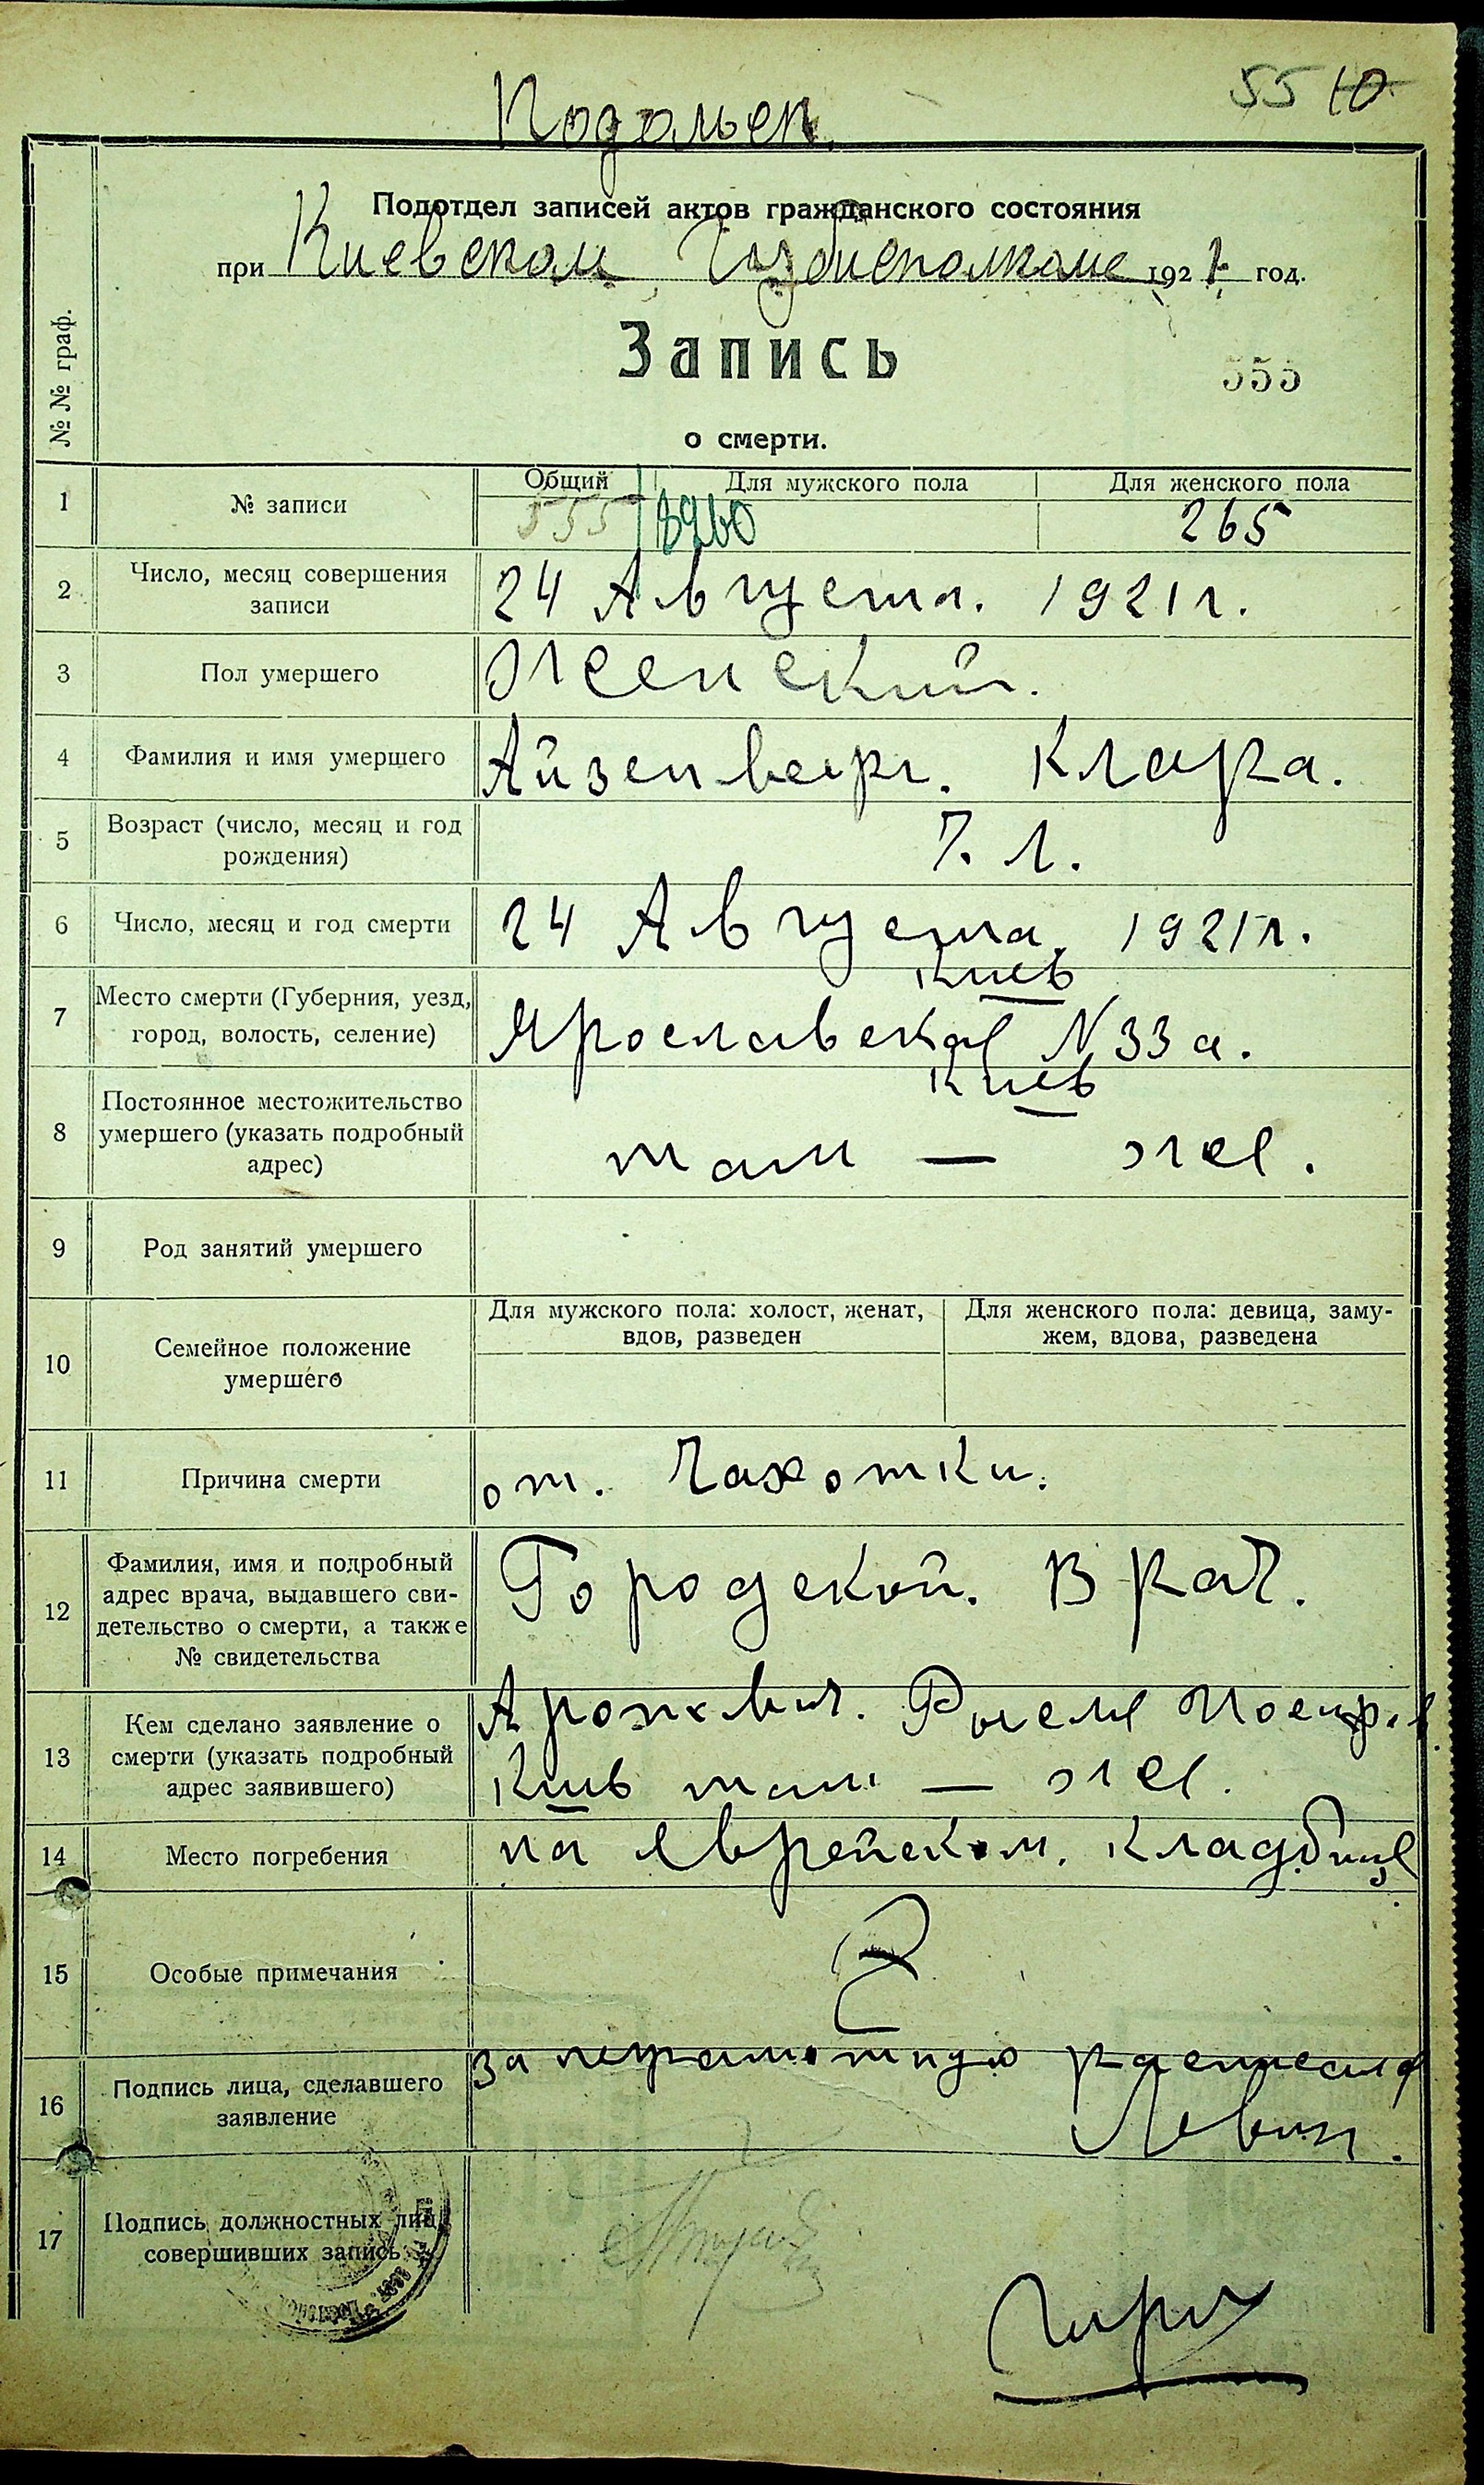 55 10
Подольск.
Подотдел записей актов гражданского состояния
при Киевском Губисполкоме 1921 год.
№№ граф.
Запись
555
о смерти.
1 № записи Общий Для мужского пола Для женского пола
555 8960 265
2 Число, месяц совершения записи
24 Августа. 1921 г.
3 Пол умершего
Женский.
4 Фамилия и имя умершего
Айзенберг. Клара.
5 Возраст (число, месяц и год рождения)
7. л.
6 Число, месяц и год смерти
24 Августа. 1921 г.
7 Место смерти (Губерния, уезд, город, волость, селение)
Киев
Ярославская N 33 а.
8 Постоянное местожительство умершего (указать подробный адрес)
Киев
там — же.
9 Род занятий умершего
10 Семейное положение умершего
Для мужского пола: холост, женат, вдов, разведен
Для женского пола: девица, замужем, вдова, разведена
11 Причина смерти
от. Чахотки.
12 Фамилия, имя и подробный адрес врача, выдавшего свидетельство о смерти, а также № свидетельства
Городской. Врач.
13 Кем сделано заявление о смерти (указать подробный адрес заявившего)
Киев там — же.
14 Место погребения
на Еврейском. кладбище
15 Особые примечания
16 Подпись лица, сделавшего заявление
за неграмотную расписался
Левин.
17 Подпись должностных лиц, совершивших запись